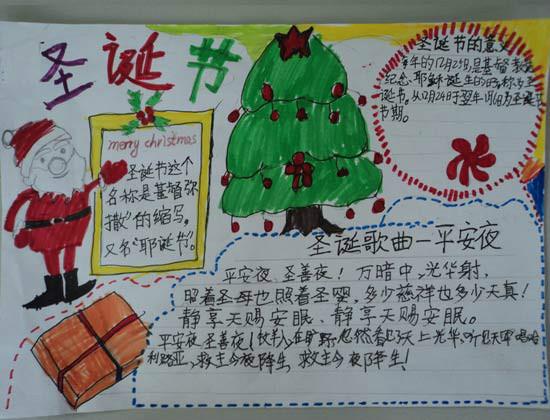 圣诞节
merry christmas
圣诞节这个
名称是基督弥
撒"的缩写。
又名"耶诞节"。
圣诞节的意义
年的12月25日,是基督教
纪念耶稣诞生的日子,称为圣
诞节。从12月24日于翌年1月6日为圣诞节
节期。
圣诞歌曲—平安夜
平安夜、圣善夜!万暗中,光华射,
照着圣母也照着圣婴,多少慈祥也多少天真!
静享天赐安眠、静享天赐安眠。
平安夜 圣善夜!牧羊人,在旷野,忽然看见天上光华,听见天军唱哈
利路亚,救主今夜降生,救主今夜降生!